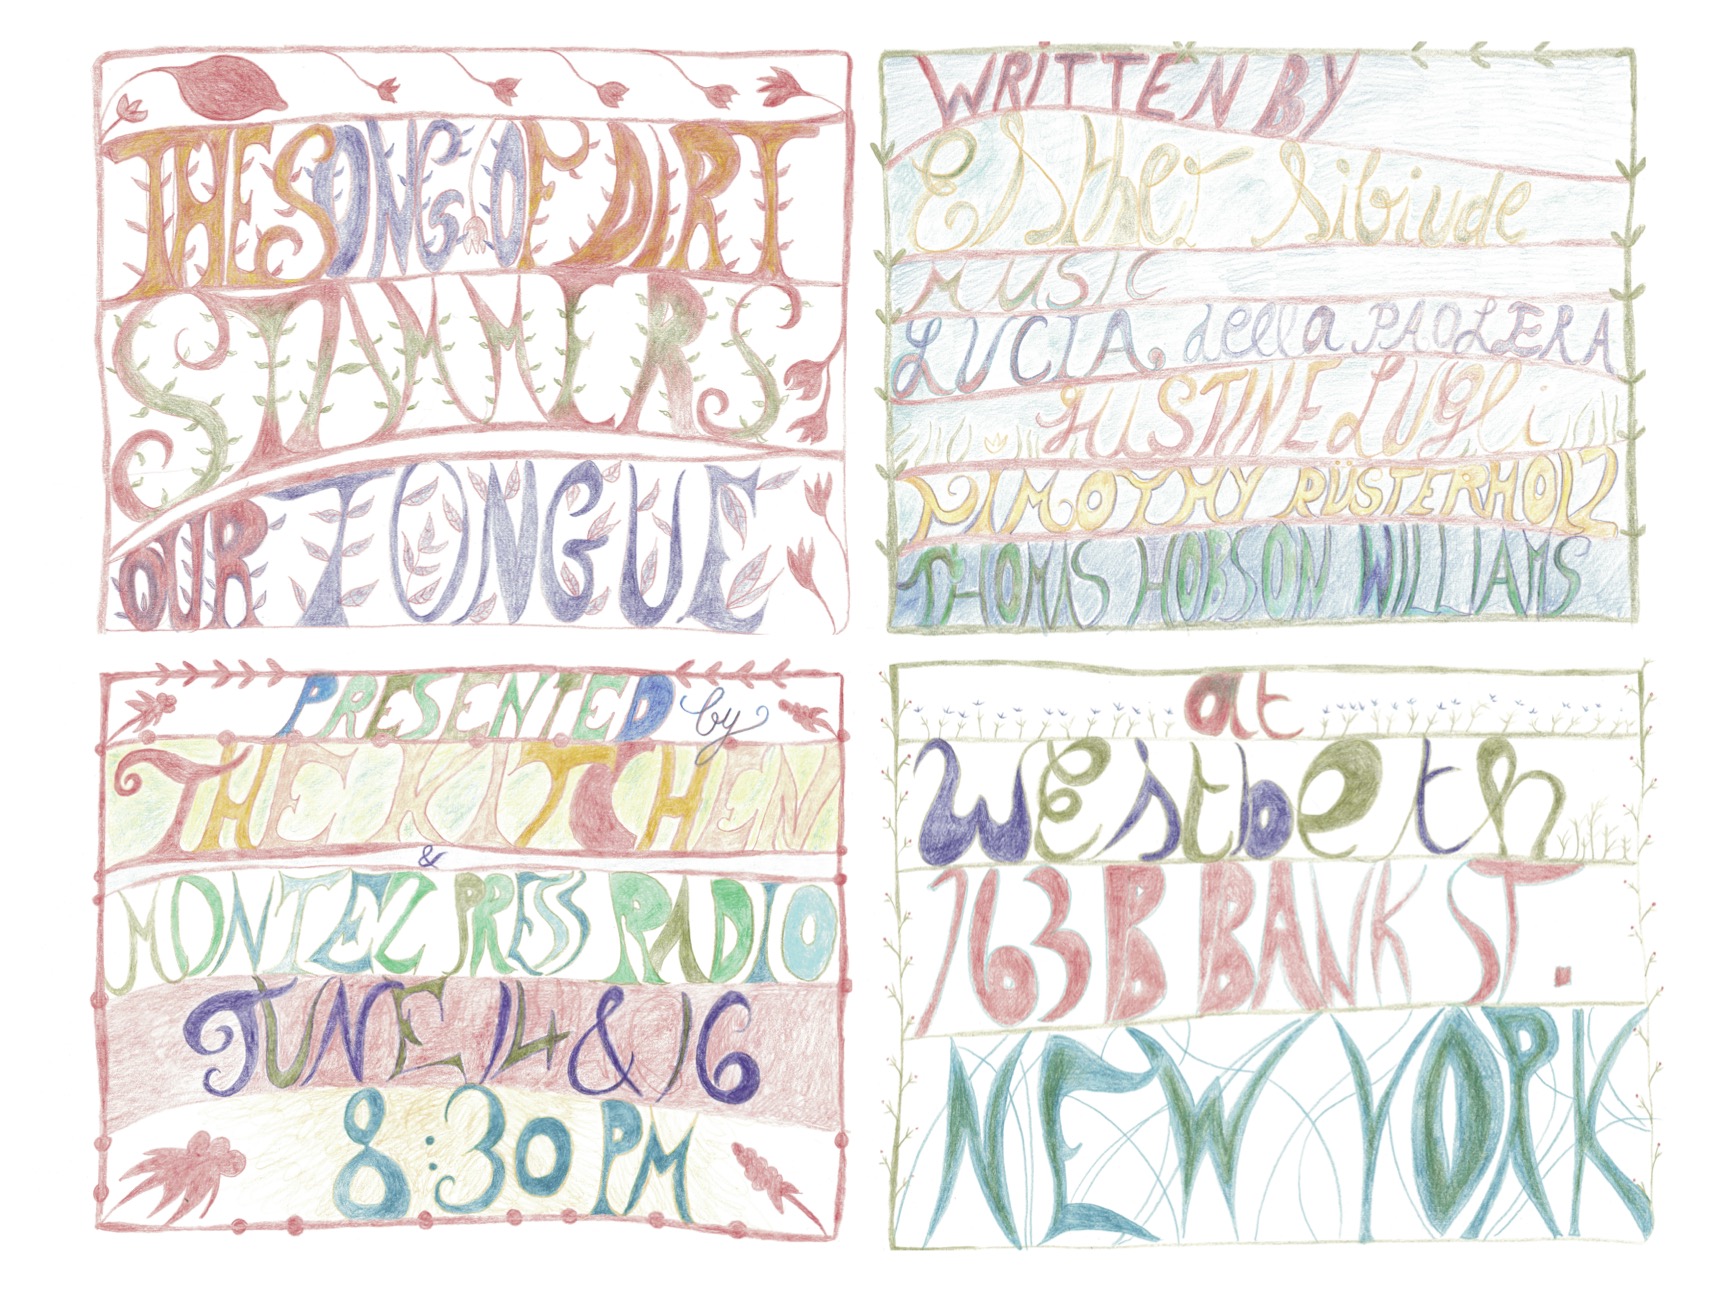 THE SONG OF DIRT
STAMMERS
OUR TONGUE
WRITTEN BY
Esther Sibiude
MUSIC
LUCIA della PAOLERA
JUSTINE LUGLi
TIMOTHY RÜSTERHOLZ
THOMAS HOBSON WILLIAMS
PRESENTED by
THE KITCHEN
&
MONTEZ PRESS RADIO
JUNE 14 & 16
8:30 PM
at
Westbeth
163B BANK ST.
NEW YORK